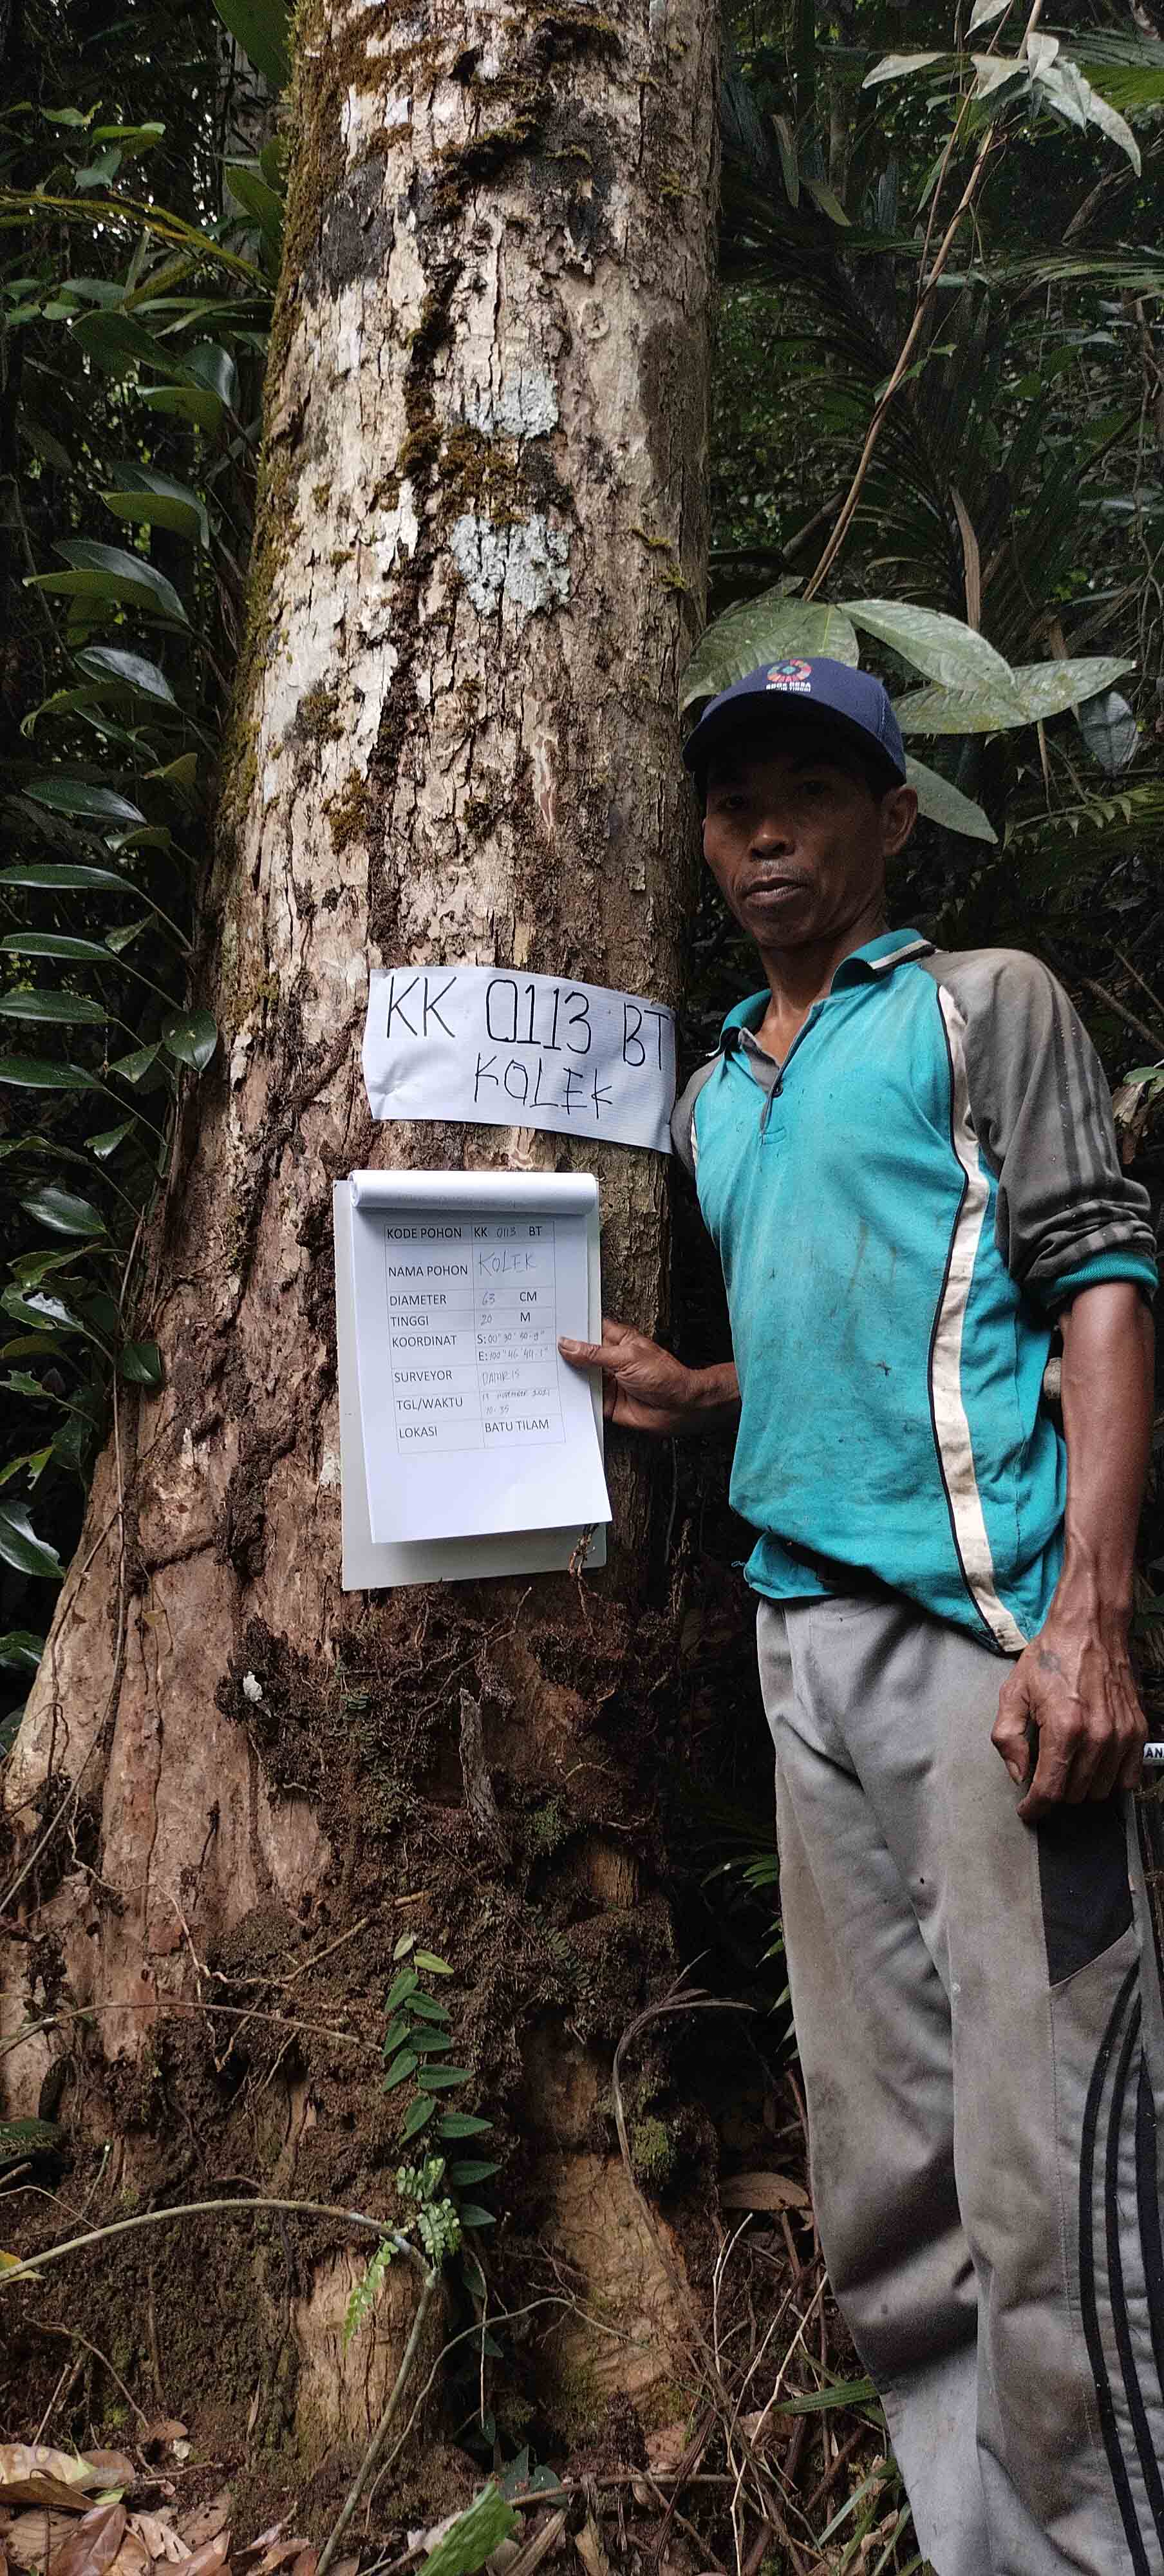 SDGs DESA
KK 0113 BT
KOLEK
KODE POHON KK 0113 BT
NAMA POHON KOLEK
DIAMETER 63 CM
TINGGI 20 M
KOORDINAT S: 00° 30' 30.9"
E: 100° 46' 44.1"
SURVEYOR DAHRIS
TGL/WAKTU 17 NOVEMBER 2021
10.35
LOKASI BATU TILAM
AN